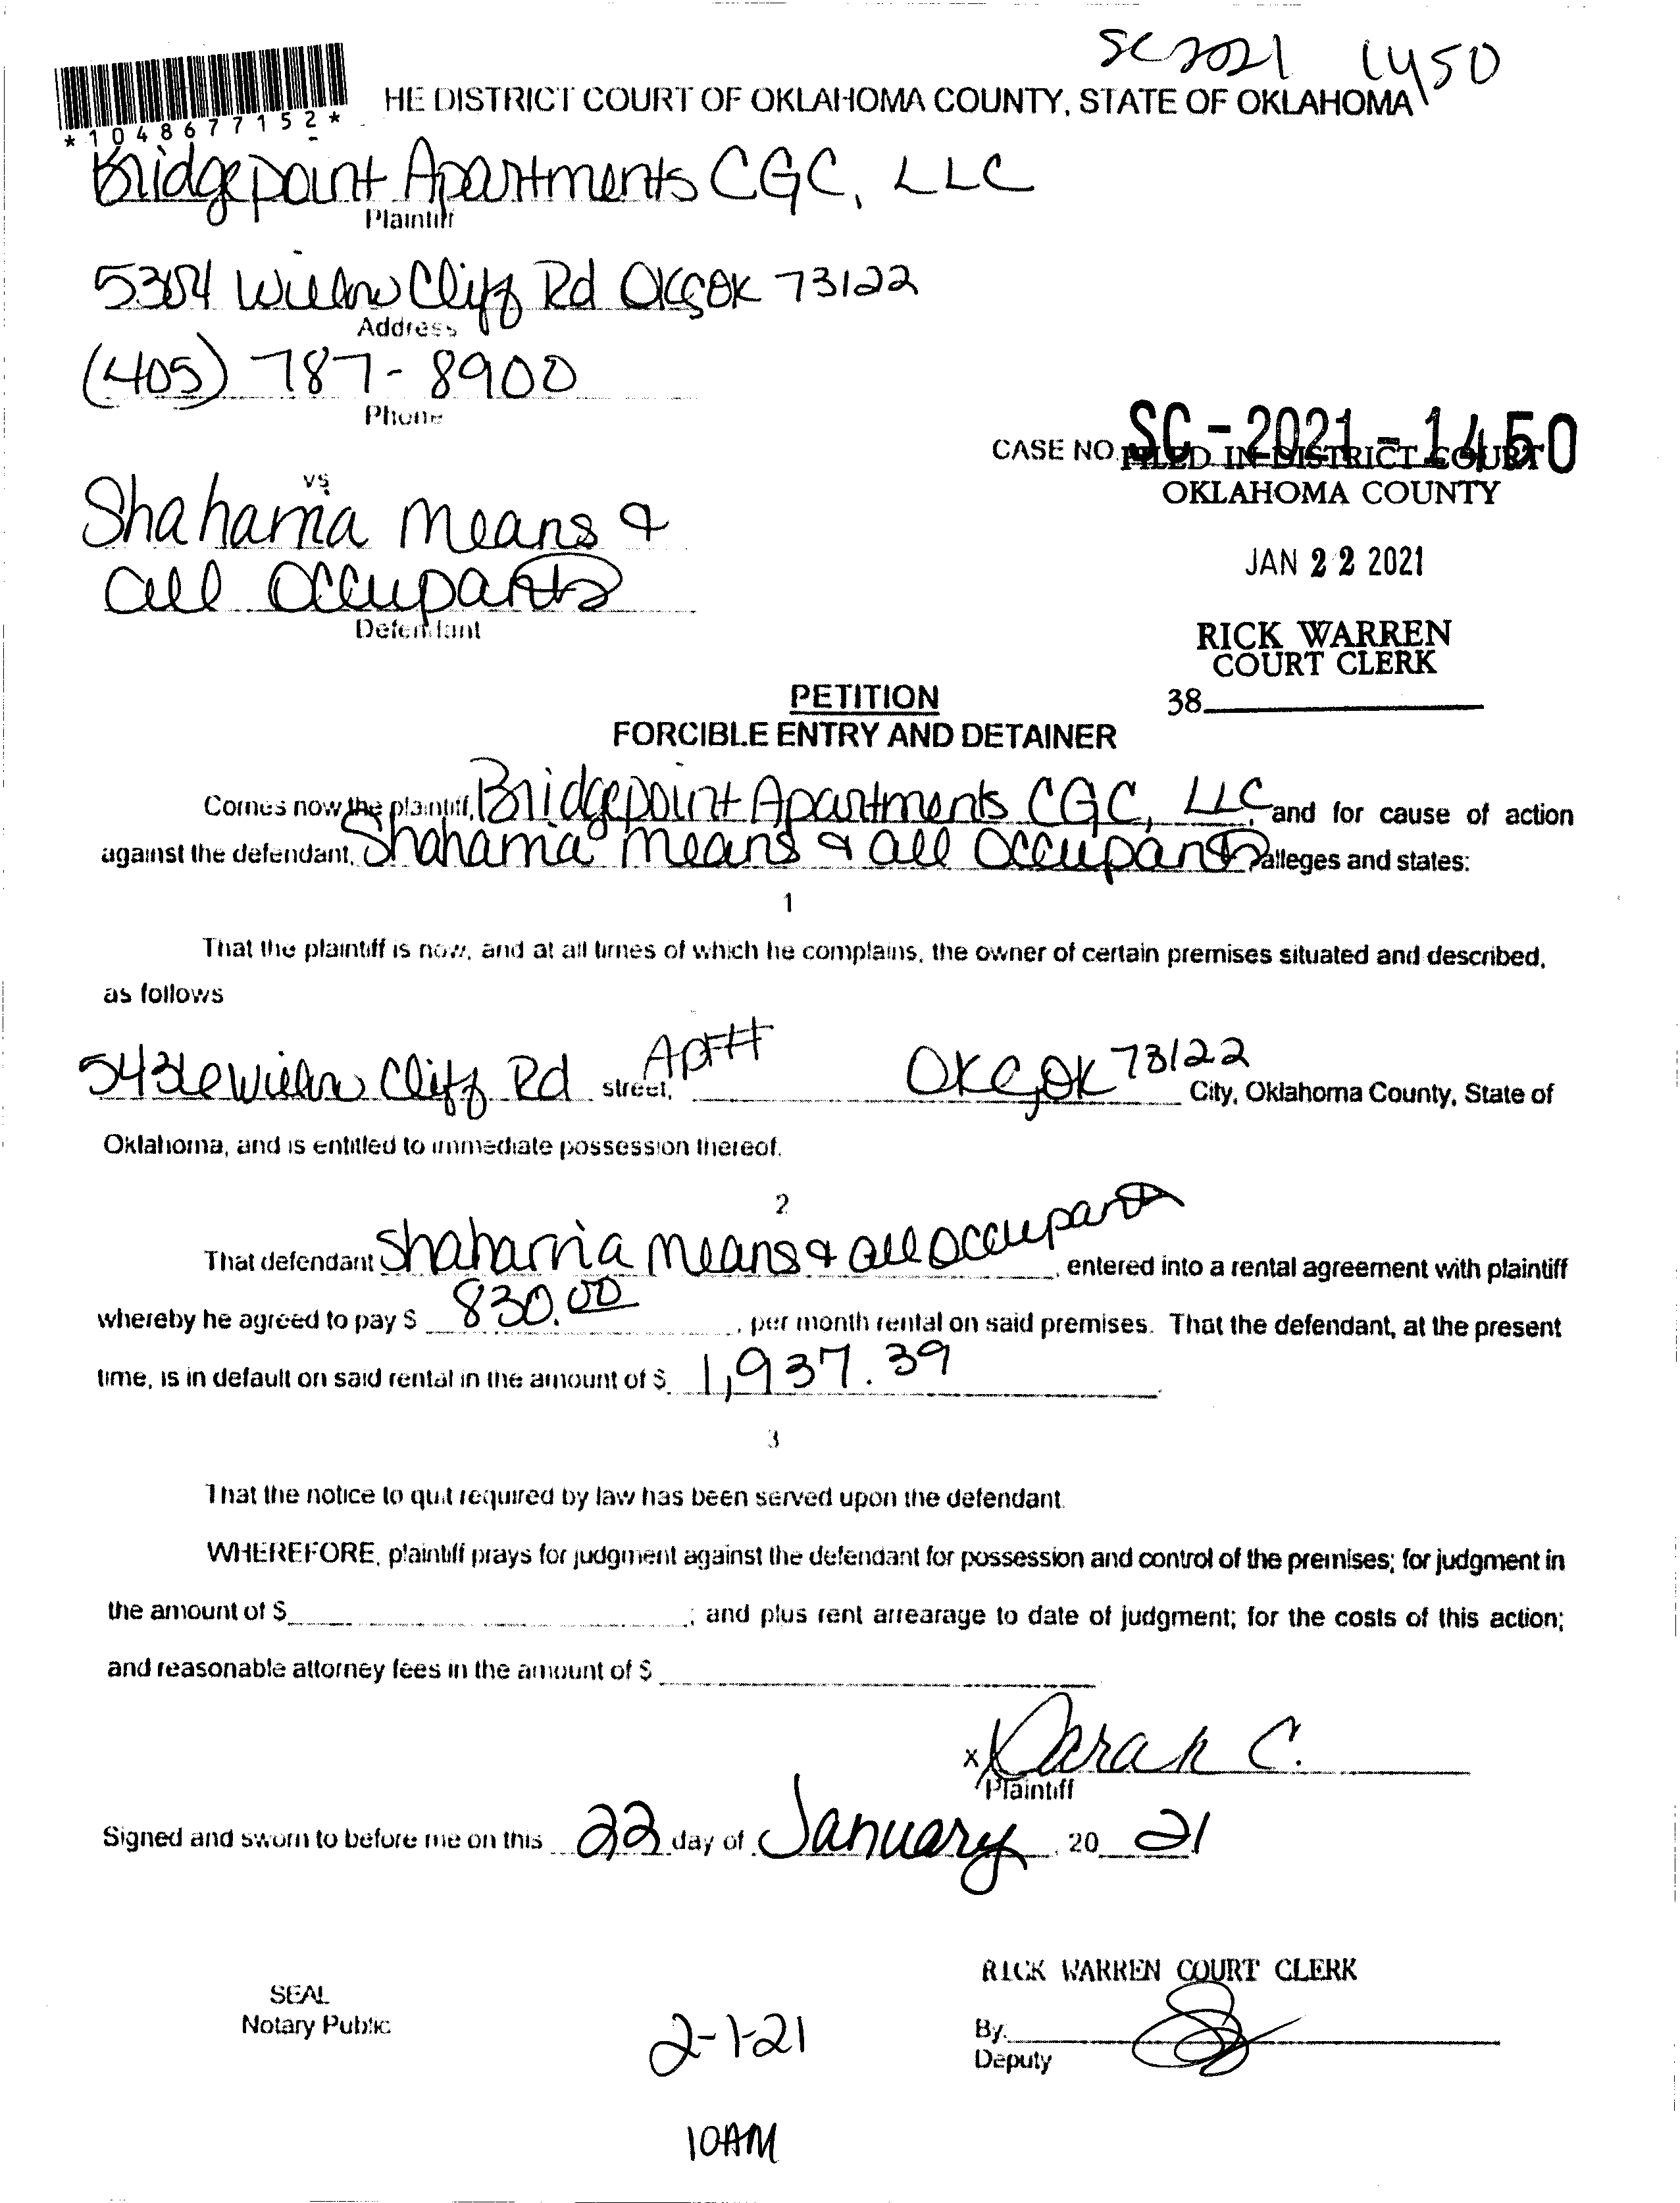 SC 2021 1450
HE DISTRICT COURT OF OKLAHOMA COUNTY, STATE OF OKLAHOMA
*1048677152*
Bridgepoint Apartments CGC, LLC
Plaintiff
5304 Willow Cliff Rd OKC OK 73122
Address
(405) 787-8900
Phone
CASE NO. SC-2021-1450
FILED IN DISTRICT COURT
OKLAHOMA COUNTY
vs
Means &
all Occupants
Defendant
JAN 22 2021
RICK WARREN
COURT CLERK
38
PETITION
FORCIBLE ENTRY AND DETAINER
Comes now the plaintiff, Bridgepoint Apartments CGC, LLC, and for cause of action
against the defendant, Means & all Occupants, alleges and states:
1
That the plaintiff is now, and at all times of which he complains, the owner of certain premises situated and described,
as follows
5436 Willow Cliff Rd street, Apt# OKC, OK 73122 City, Oklahoma County, State of
Oklahoma, and is entitled to immediate possession thereof.
2
That defendant Means & all Occupants, entered into a rental agreement with plaintiff
whereby he agreed to pay $ 830.00, per month rental on said premises. That the defendant, at the present
time, is in default on said rental in the amount of $ 1,937.39.
3
That the notice to quit required by law has been served upon the defendant.
WHEREFORE, plaintiff prays for judgment against the defendant for possession and control of the premises; for judgment in
the amount of $ ; and plus rent arrearage to date of judgment; for the costs of this action;
and reasonable attorney fees in the amount of $
x C.
Plaintiff
Signed and sworn to before me on this 22 day of January, 20 21
RICK WARREN COURT CLERK
SEAL
Notary Public
2-1-21
By.
Deputy
10AM